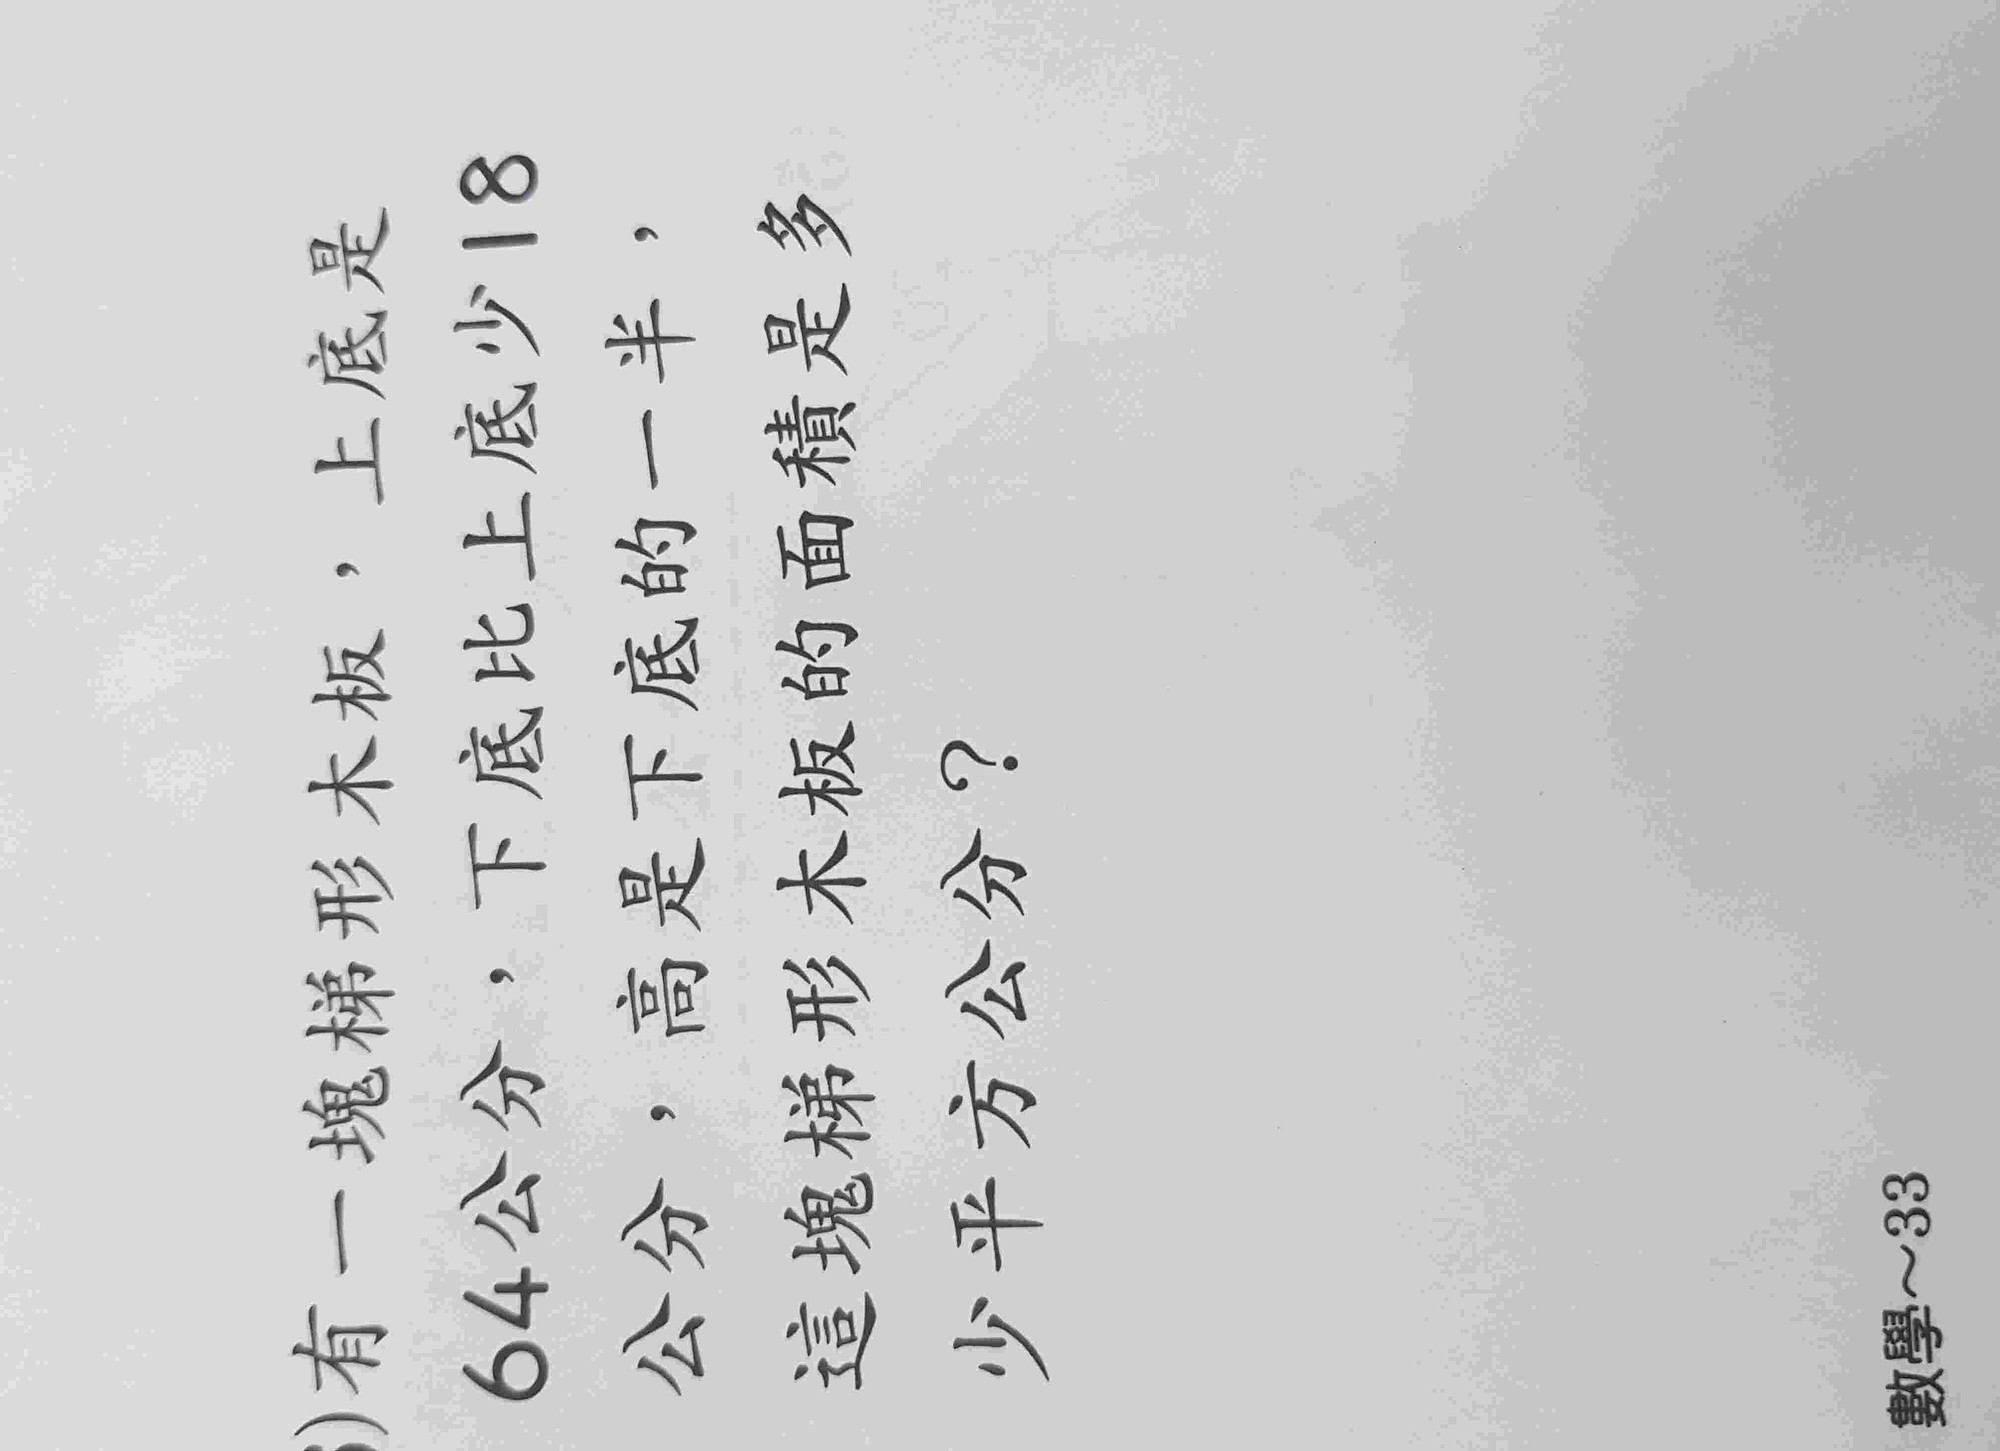 )有一塊梯形木板，上底是
64公分，下底比上底少18
公分，高是下底的一半，
這塊梯形木板的面積是多
少平方公分？
數學～33